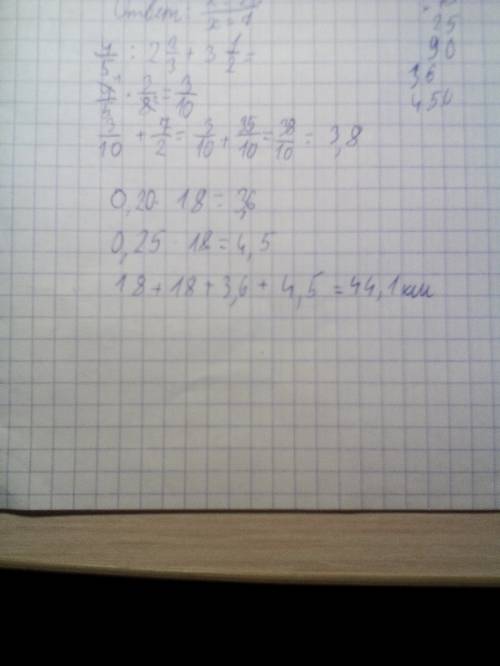 Ответ:
4/5 : 2 2/3 + 3 1/2 =
4/5 · 3/8 = 3/10
3/10 + 7/2 = 3/10 + 35/10 = 38/10 = 3,8
0,20 · 18 = 3,6
0,25 · 18 = 4,5
18 + 18 + 3,6 + 4,5 = 44,1 км
25
90
36
450